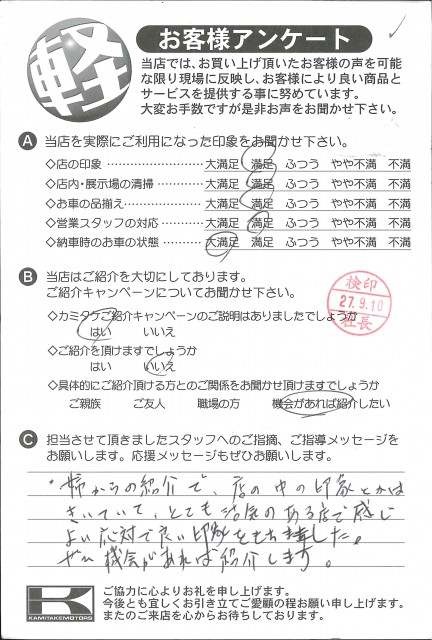 軽
お客様アンケート
当店では、お買い上げ頂いたお客様の声を可能
な限り現場に反映し、お客様により良い商品と
サービスを提供する事に努めています。
大変お手数ですが是非お声をお聞かせ下さい。
A 当店を実際にご利用になった印象をお聞かせ下さい。
◇店の印象 大満足 満足 ふつう やや不満 不満
◇店内・展示場の清掃 大満足 満足 ふつう やや不満 不満
◇お車の品揃え 大満足 満足 ふつう やや不満 不満
◇営業スタッフの対応 大満足 満足 ふつう やや不満 不満
◇納車時のお車の状態 大満足 満足 ふつう やや不満 不満
B 当店はご紹介を大切にしております。
ご紹介キャンペーンについてお聞かせ下さい。
◇カミタケご紹介キャンペーンのご説明はありましたでしょうか
はい いいえ
◇ご紹介を頂けますでしょうか
はい いいえ
◇具体的にご紹介頂ける方とのご関係をお聞かせ頂けますでしょうか
ご親族 ご友人 職場の方 機会があれば紹介したい
検印
27.9.10
社長
C 担当させて頂きましたスタッフへのご指摘、ご指導メッセージを
お願いします。応援メッセージもぜひお願いします。
・姉からの紹介で、店の中の印象とかは
きいていて、とても活気のある店で感じ
よい応対で良い印象をもちました。
ぜひ機会があれば紹介します。
K
KAMITAKEMOTORS
ご協力に心よりお礼を申し上げます。
今後とも宜しくお引き立てご愛顧の程お願い申し上げます。
またのご来店を心からお待ちしております。